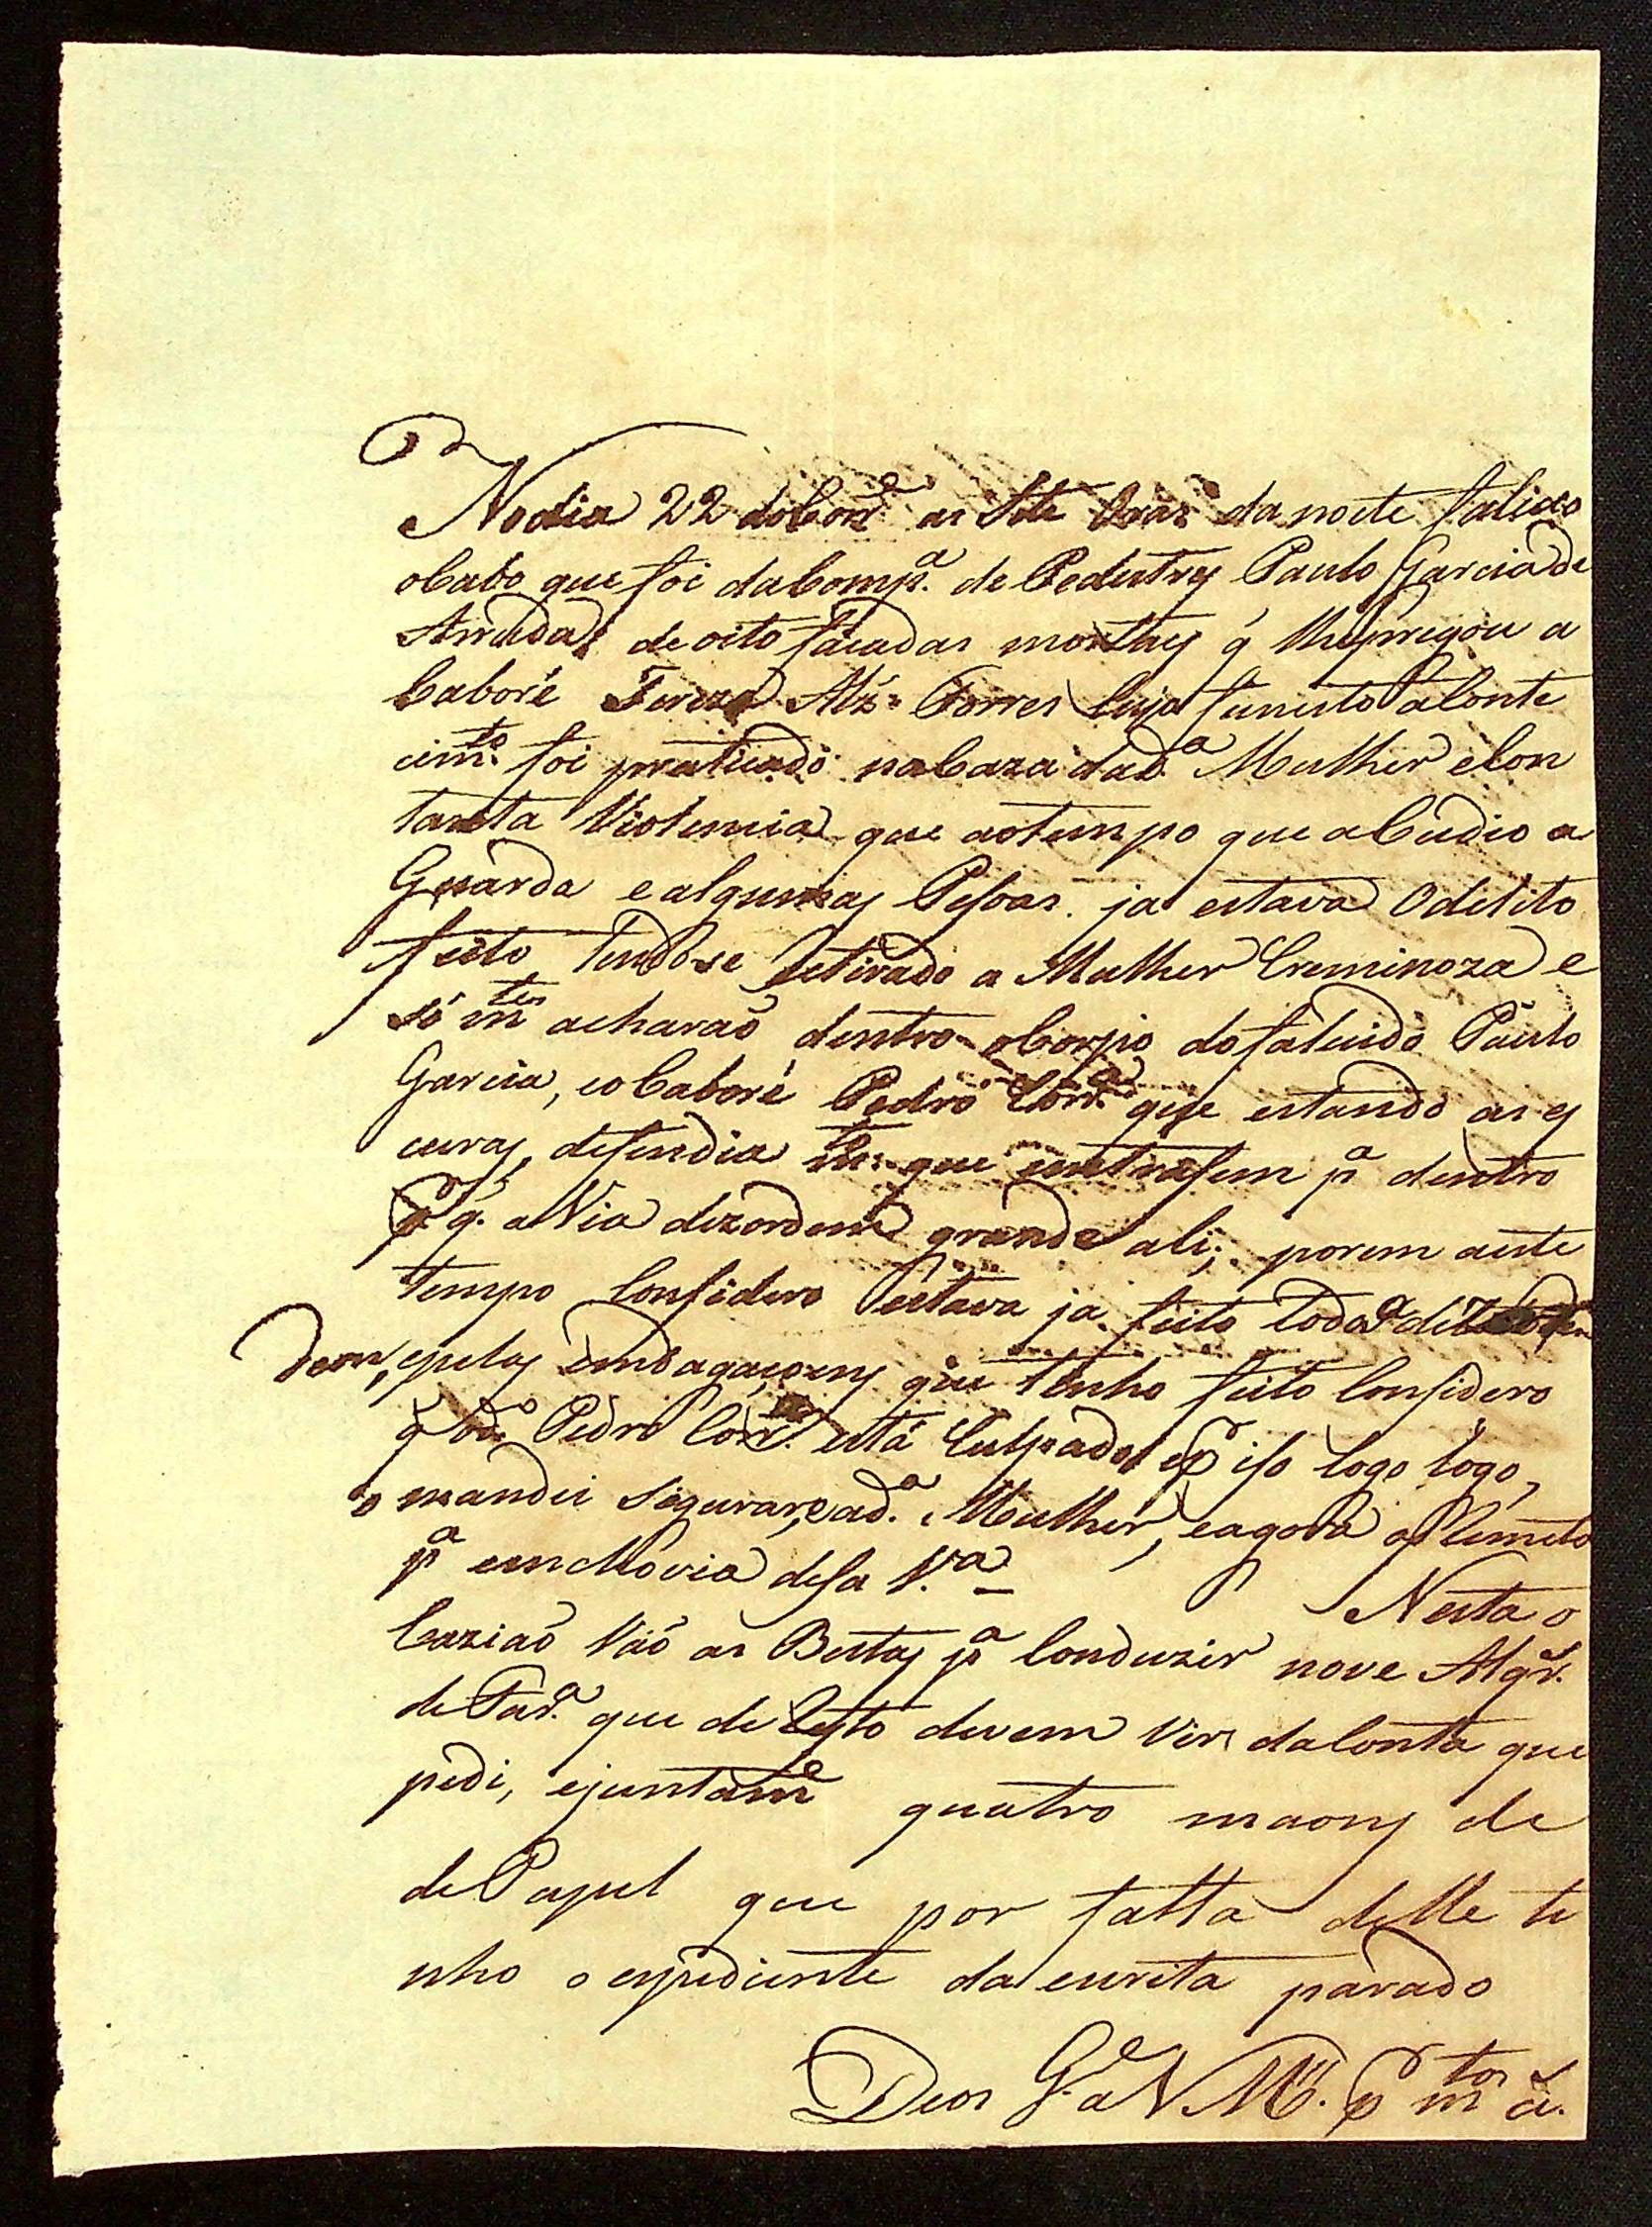 No dia 22 do Corr.e as Sete Oras da noite faliceo
o Cabo que foi da Comp.a de Pedestres Paulo Garcia de
Arruda, de oito facadas mortaes q̃ lhe pregou a
Caboré Tereza Alz' Torres Cujo funesto aConte
cim.to foi praticado na Caza da d.a Mulher e Con
tanta Violencia que ao tempo que aCudio a
Guarda e algumas Pesoas. ja estava O delito
feito tendo se Retirado a Mulher Creminoza e
só m.te acharaõ dentro o Corpo do falecido Paulo
Garcia, e o Caboré Pedro Corr.a que estando as es
curas, defendia que entrasem p.a dentro
p.r q. aVia dezordem grande ali; porem a este
tempo Considero estava ja feito toda a
dem, e pelas endagaçoens que tenho feito Consideso
q̃ o d.o Pedro Corr.a está Culpado, e p.r iso logo logo,
o mandei segurar, e a d.a Mulher, e agora os Remeto
p.a emchovia desa V.a Nesta o
Caziaõ Vaõ as Bestas p.a Conduzir nove Alqr.s
de Far.a que de Resto devem Vir da Conta que
pedi, e juntam.e quatro maons de
de Papel que por falta delle te
nho o expediente da escrita parado
Deos G.e a V M.ce p.r m.tos a.s